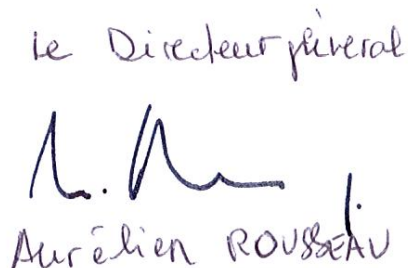 Le Directeur général
Aurélien ROUSSEAU